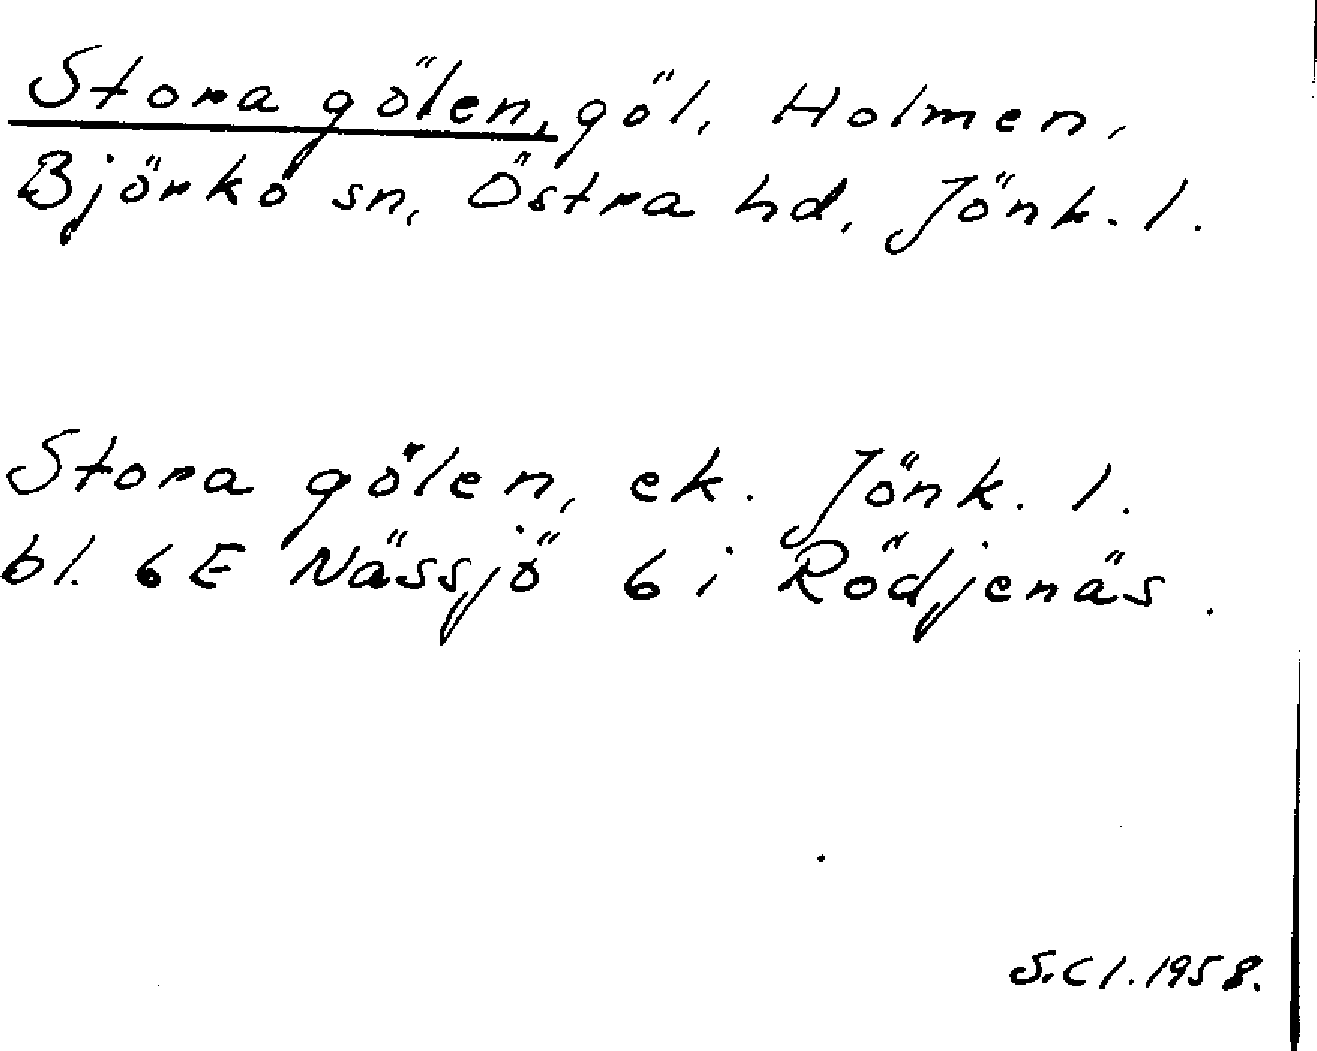 Stora gölen, göl, Holmen,
Björkö sn, Östra hd, Jönk. l.
Stora gölen, ek. Jönk. l.
bl. 6E Nässjö 6 i Rödjenäs.
S.Cl. 1958.